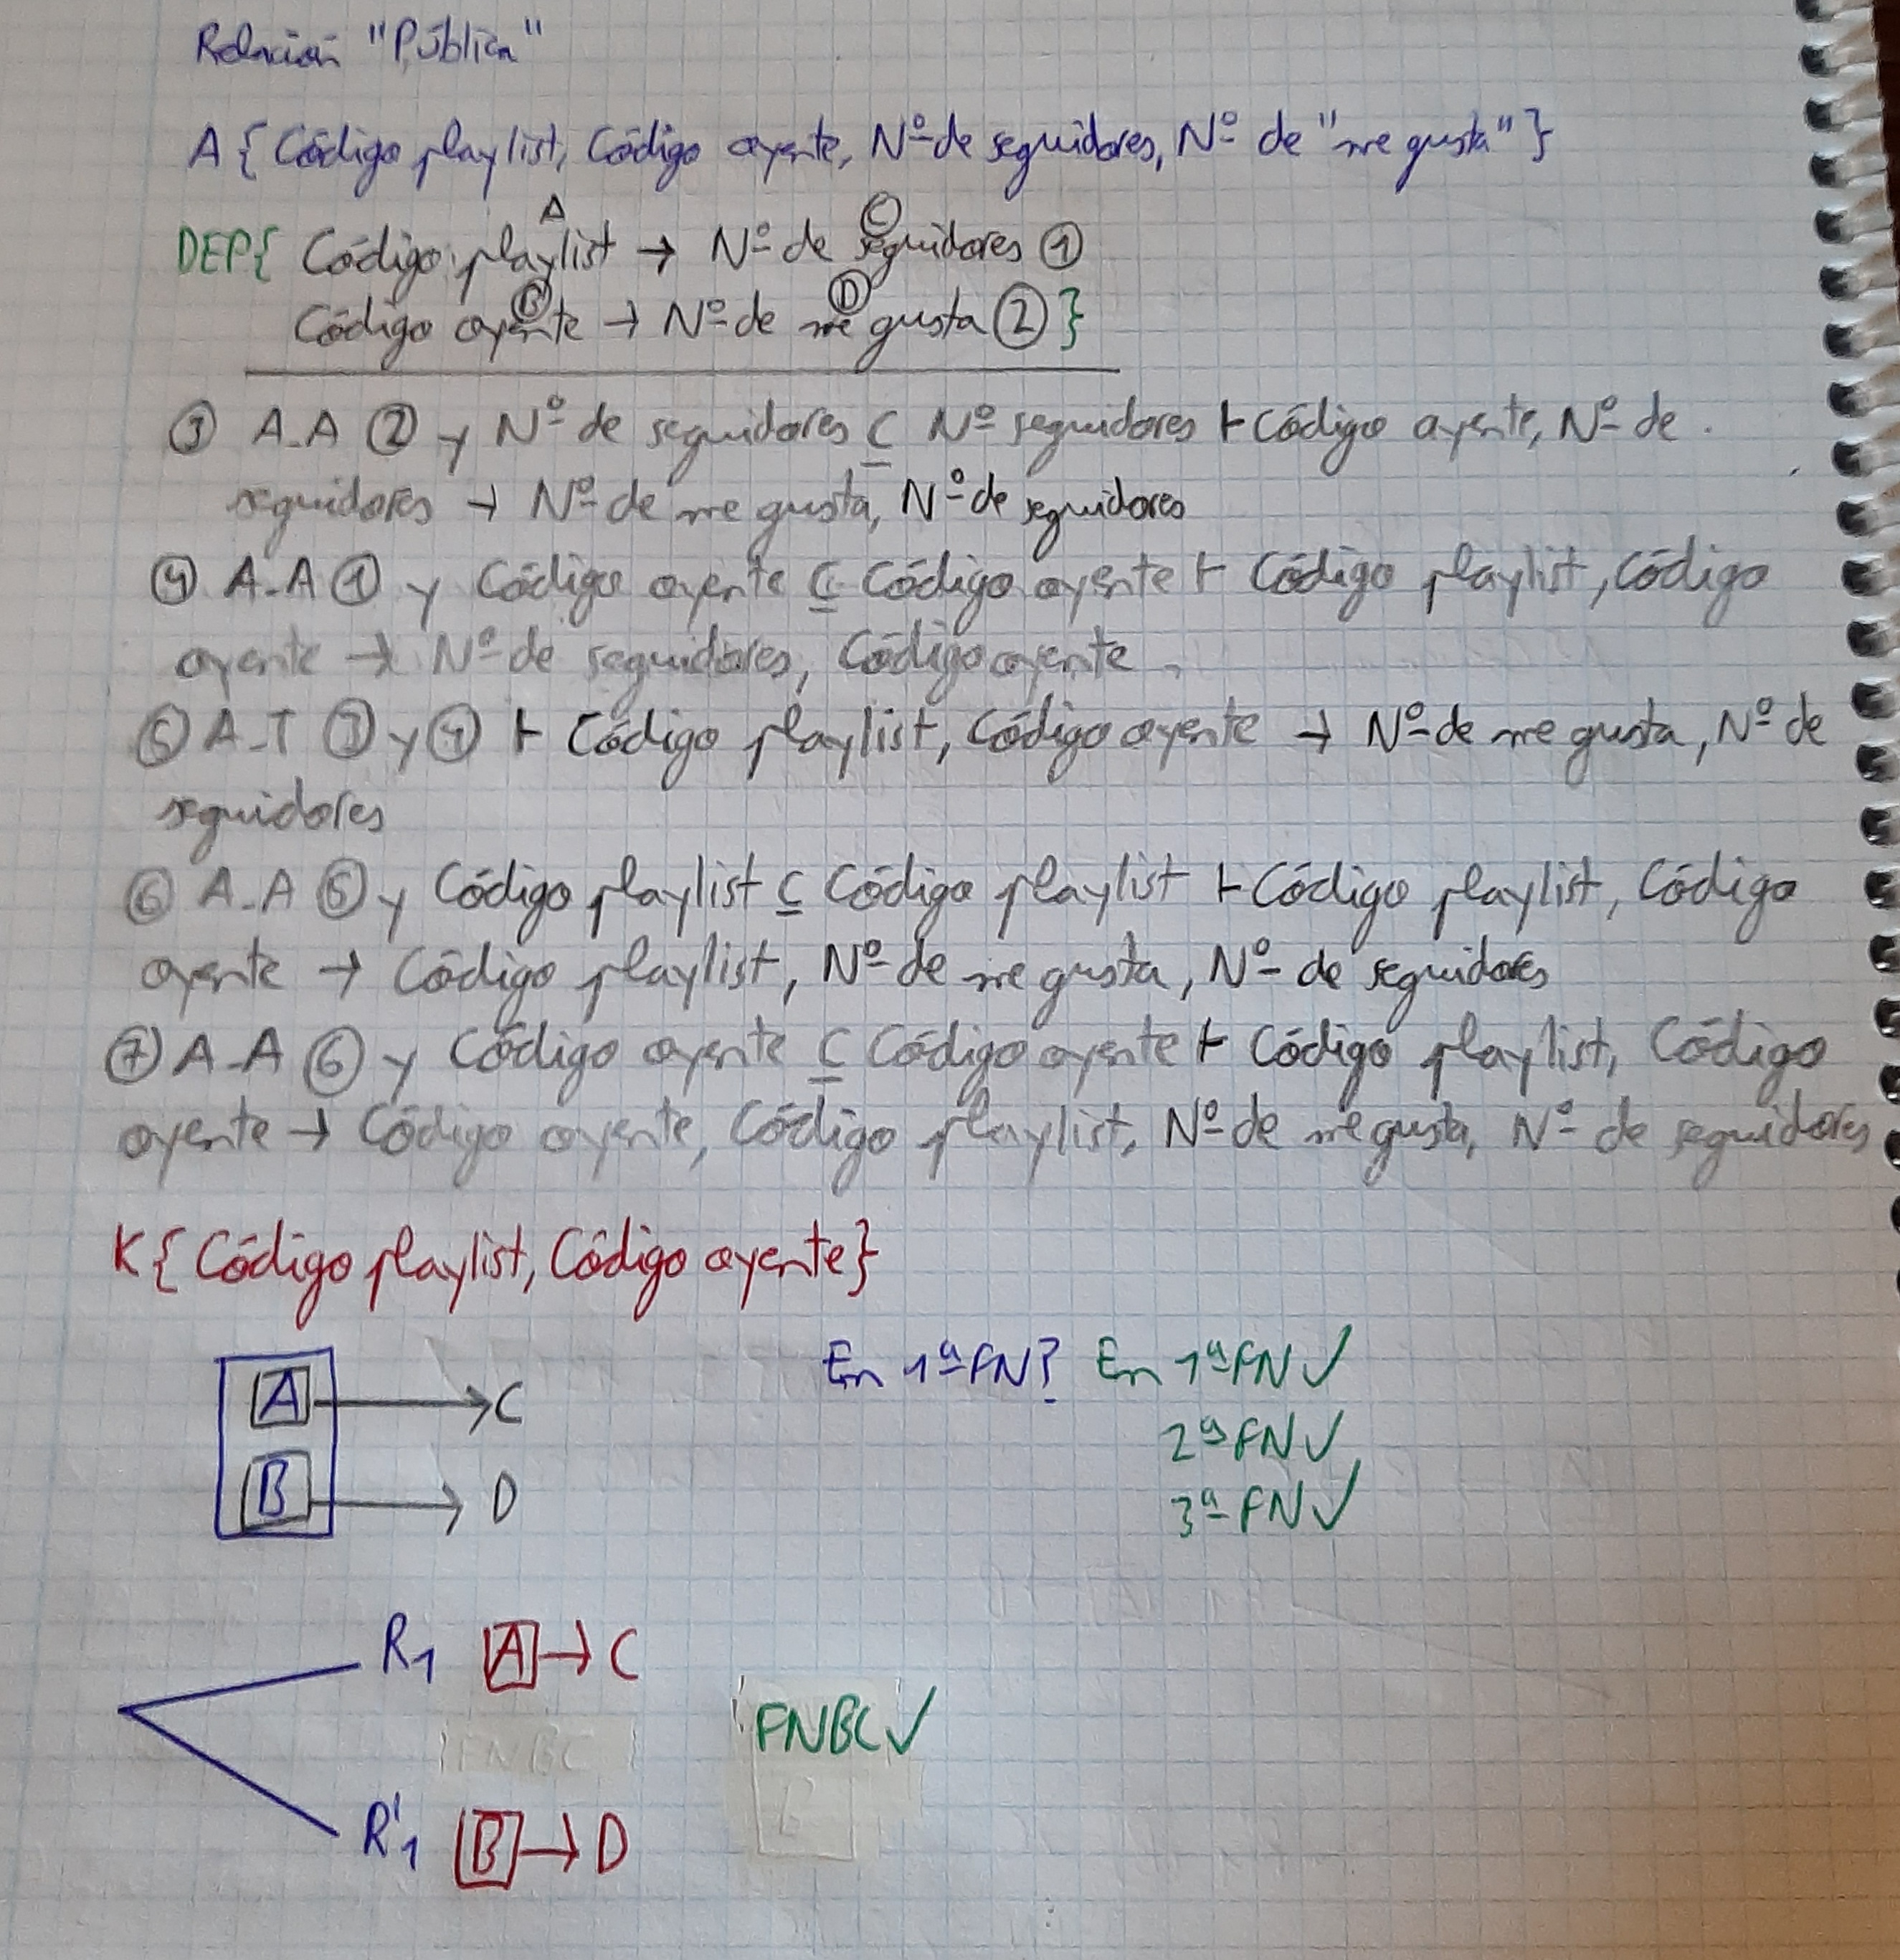 Relación "Pública"
A { Código playlist, Código oyente, Nº de seguidores, Nº de "me gusta" }
A C
DEP{ Código playlist → Nº de seguidores ①
B D
Código oyente → Nº de me gusta ② }
③ A-A ② y Nº de seguidores ⊆ Nº seguidores ⊢ Código oyente, Nº de
seguidores → Nº de me gusta, Nº de seguidores
④ A-A ① y Código oyente ⊆ Código oyente ⊢ Código playlist, Código
oyente → Nº de seguidores, Código oyente
⑤ A-T ③ y ④ ⊢ Código playlist, Código oyente → Nº de me gusta, Nº de
seguidores
⑥ A-A ⑤ y Código playlist ⊆ Código playlist ⊢ Código playlist, Código
oyente → Código playlist, Nº de me gusta, Nº de seguidores
⑦ A-A ⑥ y Código oyente ⊆ Código oyente ⊢ Código playlist, Código
oyente → Código oyente, Código playlist, Nº de me gusta, Nº de seguidores
K { Código playlist, Código oyente }
A → C
B → D
En 1ª FN? En 1ª FN ✓
2ª FN ✓
3ª FN ✓
R1 A → C
FNBC
FNBC ✓
R'1 B → D